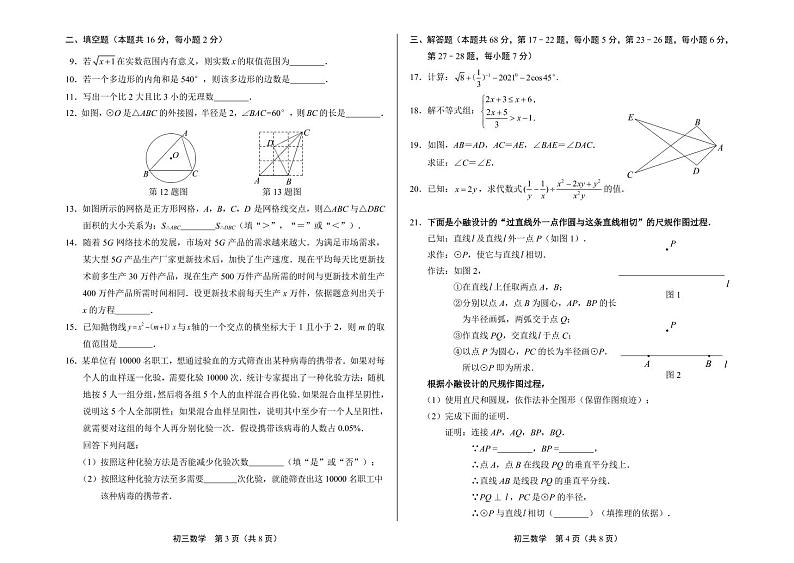 二、填空题（本题共16分，每小题2分）
9．若√(x+1)在实数范围内有意义，则实数x的取值范围为________．
10．若一个多边形的内角和是540°，则该多边形的边数是________．
11．写出一个比2大且比3小的无理数________．
12．如图，⊙O是△ABC的外接圆，半径是2，∠BAC=60°，则BC的长是________．
A
O
B
C
第12题图
D
C
A
B
第13题图
13．如图所示的网格是正方形网格，A，B，C，D是网格线交点，则△ABC与△DBC
面积的大小关系为：S△ABC________S△DBC（填“＞”，“＝”或“＜”）．
14．随着5G网络技术的发展，市场对5G产品的需求越来越大．为满足市场需求，
某大型5G产品生产厂家更新技术后，加快了生产速度．现在平均每天比更新技
术前多生产30万件产品，现在生产500万件产品所需的时间与更新技术前生产
400万件产品所需时间相同．设更新技术前每天生产x万件，依据题意列出关于
x的方程________．
15．已知抛物线y=x²−(m+1)x与x轴的一个交点的横坐标大于1且小于2，则m的取
值范围是________．
16．某单位有10000名职工，想通过验血的方式筛查出某种病毒的携带者．如果对每
个人的血样逐一化验，需要化验10000次．统计专家提出了一种化验方法：随机
地按5人一组分组，然后将各组5个人的血样混合再化验．如果混合血样呈阴性，
说明这5个人全部阴性；如果混合血样呈阳性，说明其中至少有一个人呈阳性，
就需要对这组的每个人再分别化验一次．假设携带该病毒的人数占0.05%．
回答下列问题：
（1）按照这种化验方法是否能减少化验次数________（填“是”或“否”）；
（2）按照这种化验方法至多需要________次化验，就能筛查出这10000名职工中
该种病毒的携带者．
初三数学 第3页（共8页）
三、解答题（本题共68分，第17－22题，每小题5分，第23－26题，每小题6分，
第27－28题，每小题7分）
17．计算：√8+(1/3)⁻¹−2021⁰−2cos45°．
18．解不等式组：{2x+3≤x+6, (2x+5)/3>x−1.
19．如图，AB=AD，AC=AE，∠BAE=∠DAC．
求证：∠C=∠E．
E
B
A
C
D
20．已知：x=2y，求代数式(1/y−1/x)÷(x²−2xy+y²)/(x²y)的值．
21．下面是小融设计的“过直线外一点作圆与这条直线相切”的尺规作图过程．
已知：直线l及直线l外一点P（如图1）．
求作：⊙P，使它与直线l相切．
作法：如图2，
①在直线l上任取两点A，B；
②分别以点A，点B为圆心，AP，BP的长
为半径画弧，两弧交于点Q；
③作直线PQ，交直线l于点C；
④以点P为圆心，PC的长为半径画⊙P．
所以⊙P即为所求．
P
l
图1
P
A
B
l
图2
根据小融设计的尺规作图过程，
（1）使用直尺和圆规，依作法补全图形（保留作图痕迹）；
（2）完成下面的证明．
证明：连接AP，AQ，BP，BQ．
∵AP=________，BP=________，
∴点A，点B在线段PQ的垂直平分线上．
∴直线AB是线段PQ的垂直平分线．
∵PQ⊥l，PC是⊙P的半径，
∴⊙P与直线l相切（________）（填推理的依据）．
初三数学 第4页（共8页）